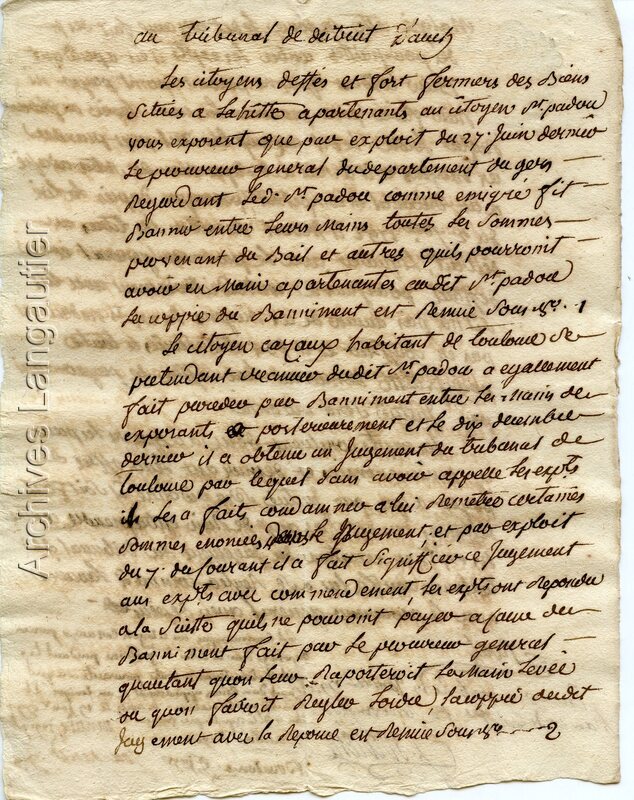 au tribunal de district d'auch
Les citoyens deffés et fort fermiers des Biens
Situés a Lahitte apartenants au citoyen St. padou
vous exposent que par exploit du 27. Juin dernier
Le procureur general du departement du gers
Regardant Led. St. padou comme emigré fit
Bannir entre Leurs Mains toutes les sommes
provenant du Bail et autres quils pourroint
avoir en Main apartenantes audit St. padou
La coppie du Banniment est Remise Sous no. 1
Le citoyen cazaux habitant de toulouse se
pretendant creancier dudit St. padou a egallement
fait proceder par Banniment entre les Mains des
exposants posterieurement et le dix decembre
dernier il a obtenu un Jugement du tribunal de
toulouse par lequel sans avoir appelle les expts
il les a fait condamner a lui Remettre certaines
sommes enoncées dans le Jugement, et par exploit
du 7. du Courant il a fait Signiffier ce Jugement
aux expts avec commendement, les expts ont Repondu
a la Suitte quils ne pouvoint payer a cause du
Banniment fait par le procureur general
quautant quon Leur Raporteroit la Main Levée
ou quon fairoit Regler Lordre, la coppie dudit
Jugement avec la Reponse est Remise Sous no. 2
Archives Langautier